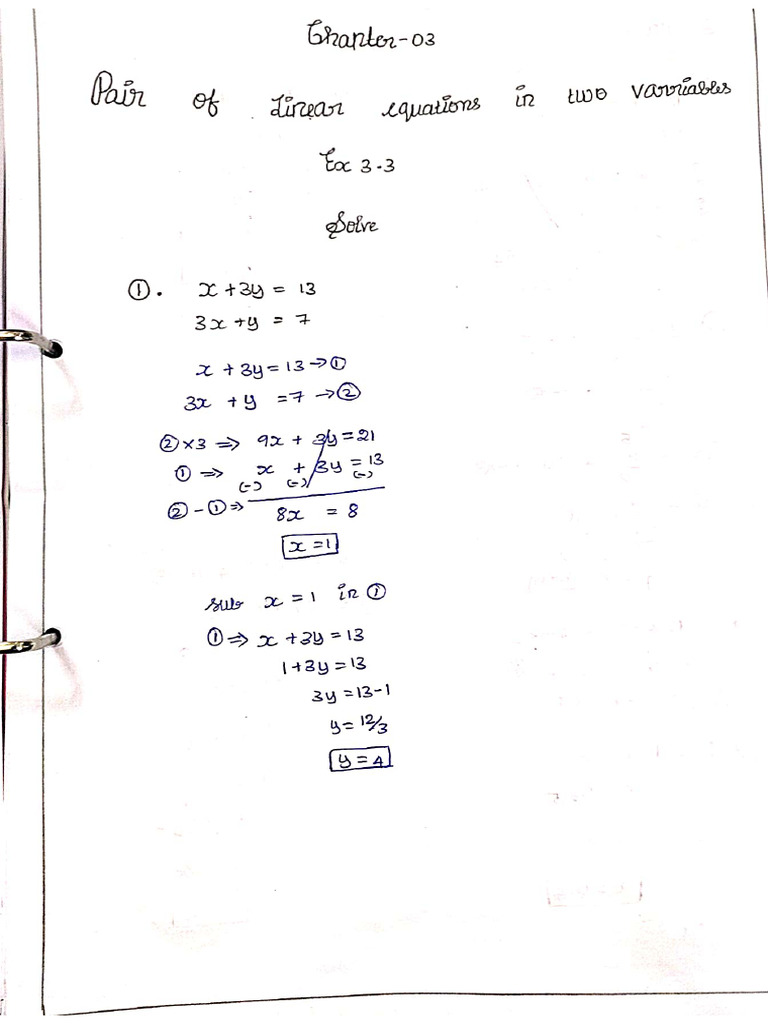 Chapter-03
Pair of Linear equations in two varriables
Ex 3.3
Solve
①. x + 3y = 13
3x + y = 7
x + 3y = 13 → ①
3x + y = 7 → ②
② × 3 ⇒ 9x + 3y = 21
① ⇒ x + 3y = 13
(-) (-) (-)
② - ① ⇒ 8x = 8
x = 1
sub x = 1 in ①
① ⇒ x + 3y = 13
1 + 3y = 13
3y = 13 - 1
y = 12/3
y = 4